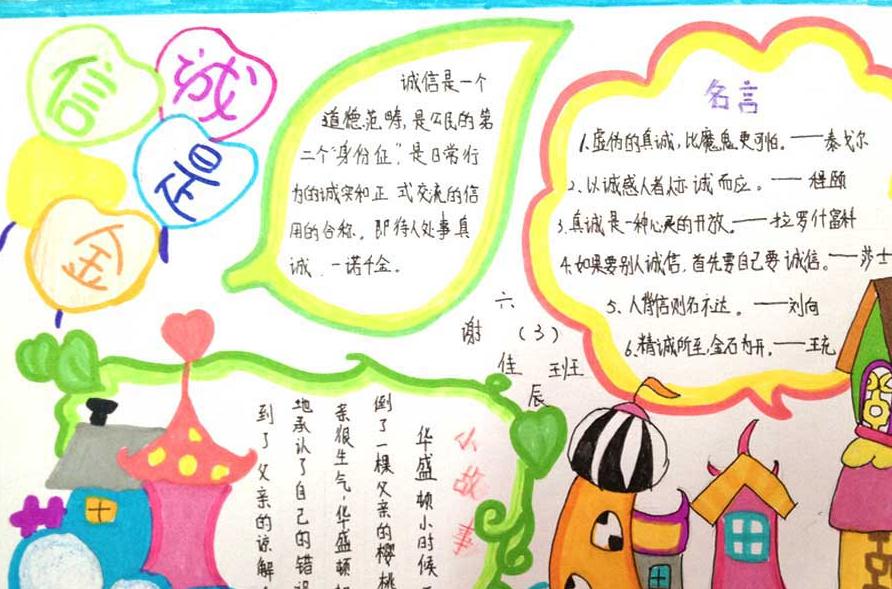 诚
信
是
金
诚信是一个
道德范畴,是公民的第
二个“身份证”,是日常行
为的诚实和正式交流的信
用的合称。即待人处事真
诚、一诺千金。
名言
1.虚伪的真诚,比魔鬼更可怕。——泰戈尔
2.以诚感人者人亦诚而应。——程颐
3.真诚是一种心灵的开放。——拉罗什富科
4.如果要别人诚信,首先要自己要诚信。——莎士
5、人背信则名不达。——刘向
6.精诚所至,金石为开。——王充
六(3)班
谢佳辰
小故事
华盛顿小时候
倒了一棵父亲的樱桃
亲很生气,华盛顿
地承认了自己的错误
到了父亲的谅解